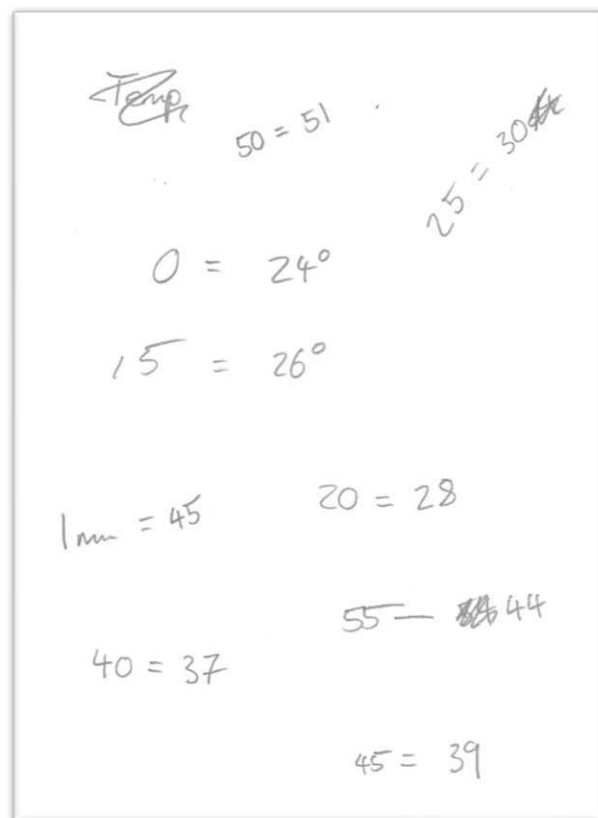 Temp
50 = 51
25 = 30
0 = 24°
15 = 26°
1 min = 45
20 = 28
55 — 44
40 = 37
45 = 39